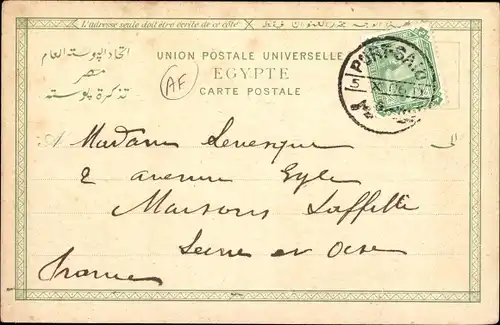 L'adresse seule doit être écrite de ce côté
UNION POSTALE UNIVERSELLE
اتحاد البوسته العام
EGYPTE
مصر
CARTE POSTALE
تذكرة بوسته
AF
PORT-SAID
A Madame Levesque
الى
2 avenue Eglé
Maisons Laffitte
Seine et Oise
France